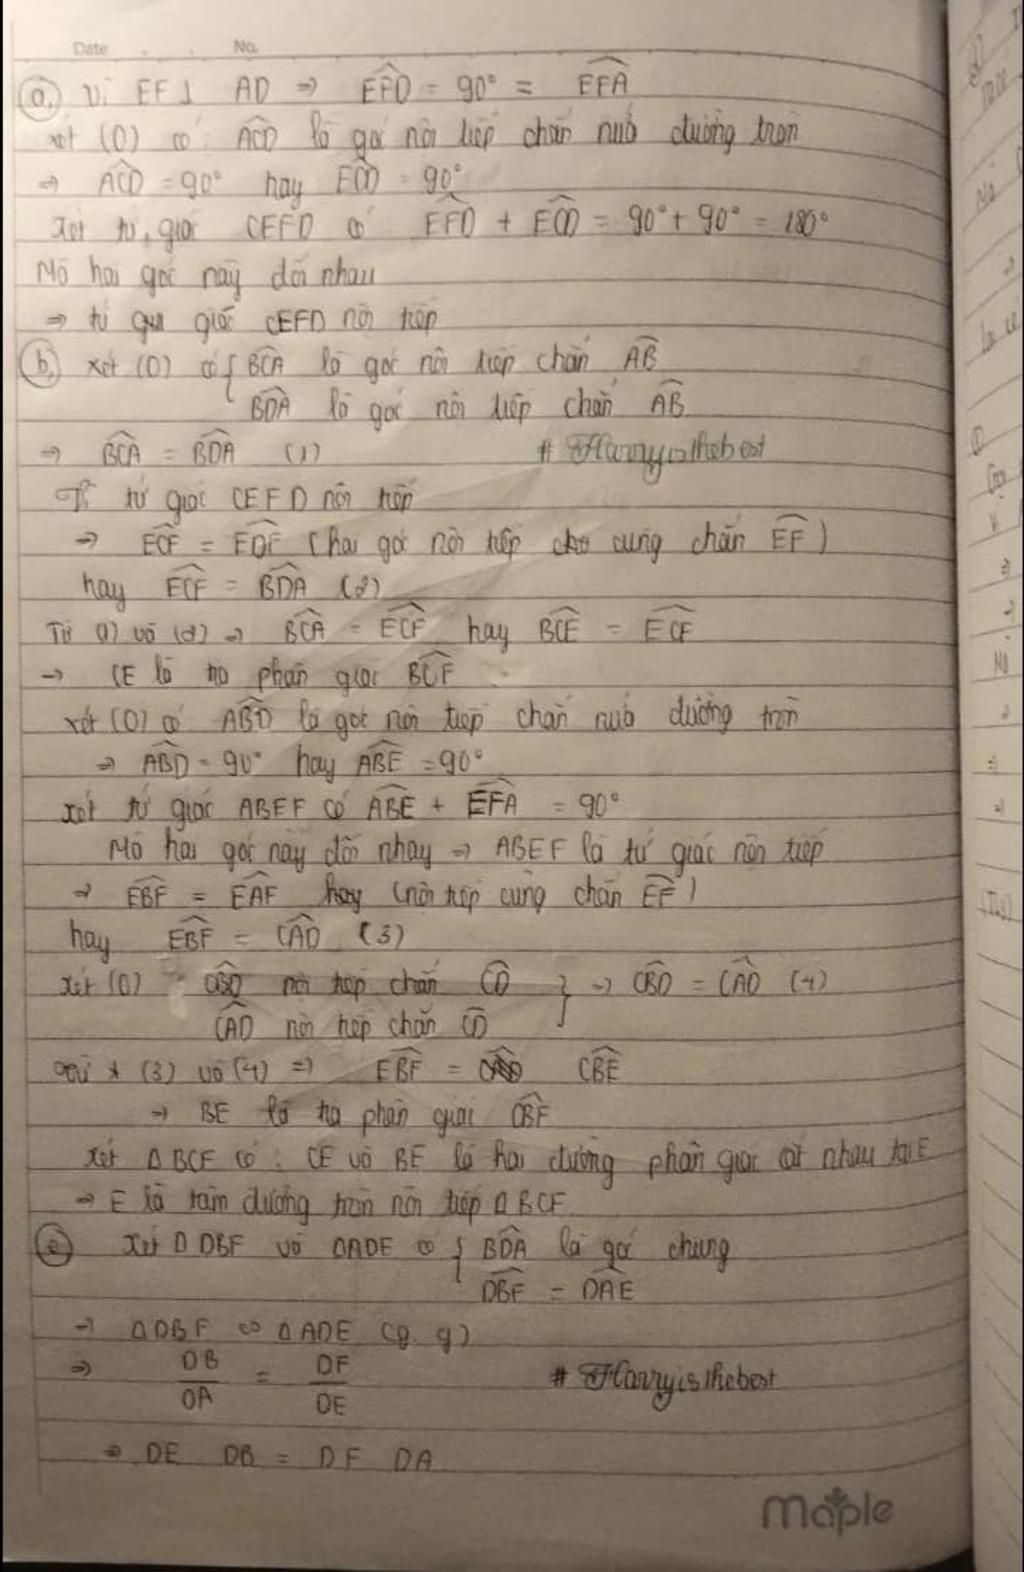 Date . . No.
a, Vì EF ⊥ AD ⇒ \widehat{EFD} = 90° = \widehat{EFA}
xét (O) có: \widehat{ACD} là góc nội tiếp chắn nửa đường tròn
⇒ \widehat{ACD} = 90° hay \widehat{ECD} = 90°
Xét tứ giác CEFD có: \widehat{EFD} + \widehat{ECD} = 90° + 90° = 180°
Mà hai góc này đối nhau
⇒ tứ giác CEFD nội tiếp
b, xét (O) có { \widehat{BCA} là góc nội tiếp chắn \widehat{AB}
\widehat{BDA} là góc nội tiếp chắn \widehat{AB}
⇒ \widehat{BCA} = \widehat{BDA} (1) # Harryisthebest
Vì tứ giác CEFD nội tiếp
⇒ \widehat{ECF} = \widehat{EDF} (hai góc nội tiếp cùng chắn \widehat{EF})
hay \widehat{ECF} = \widehat{BDA} (2)
Từ (1) và (2) ⇒ \widehat{BCA} = \widehat{ECF} hay \widehat{BCE} = \widehat{ECF}
⇒ CE là tia phân giác \widehat{BCF}
xét (O) có \widehat{ABD} là góc nội tiếp chắn nửa đường tròn
⇒ \widehat{ABD} = 90° hay \widehat{ABE} = 90°
xét tứ giác ABEF có \widehat{ABE} + \widehat{EFA} = 90°
Mà hai góc này đối nhay ⇒ ABEF là tứ giác nội tiếp
⇒ \widehat{EBF} = \widehat{EAF} (nội tiếp cùng chắn \widehat{EF})
hay \widehat{EBF} = \widehat{CAD} (3)
xét (O) \widehat{CBD} nội tiếp chắn \widehat{CD} } ⇒ \widehat{CBD} = \widehat{CAD} (4)
\widehat{CAD} nội tiếp chắn \widehat{CD}
(3) và (4) ⇒ \widehat{EBF} = \widehat{CBE}
⇒ BE là tia phân giác \widehat{CBF}
Xét Δ BCF có: CE và BE là hai đường phân giác cắt nhau tại E
⇒ E là tâm đường tròn nội tiếp Δ BCF
c Xét Δ DBF và ΔADE có { \widehat{BDA} là góc chung
\widehat{DBF} = \widehat{DAE}
⇒ ΔDBF ∽ ΔADE (g.g)
⇒ \frac{DB}{DA} = \frac{DF}{DE} # Harryisthebest
⇒ DE DB = DF DA
Maple